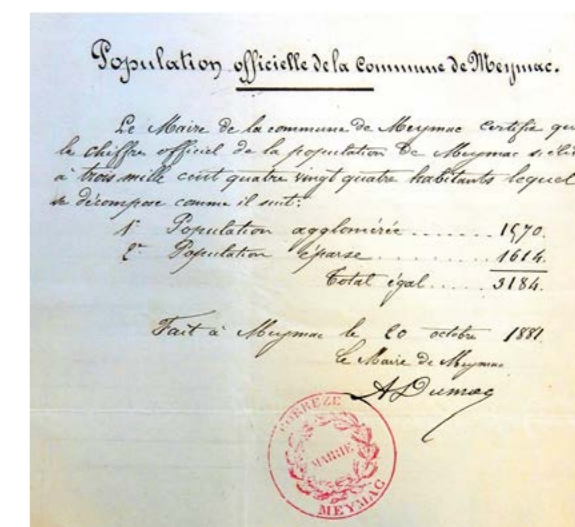 Population officielle de la Commune de Meymac.
Le Maire de la commune de Meymac certifie que
le chiffre officiel de la population de Meymac s'élè
à trois mille cent quatre vingt quatre habitants lequel
se décompose comme il suit:
1° Population agglomérée ........ 1570.
2° Population éparse ........ 1614.
Total égal ..... 3184.
Fait à Meymac le 20 octobre 1881.
Le Maire de Meymac
A Dumas
CORREZE
MAIRIE
MEYMAC